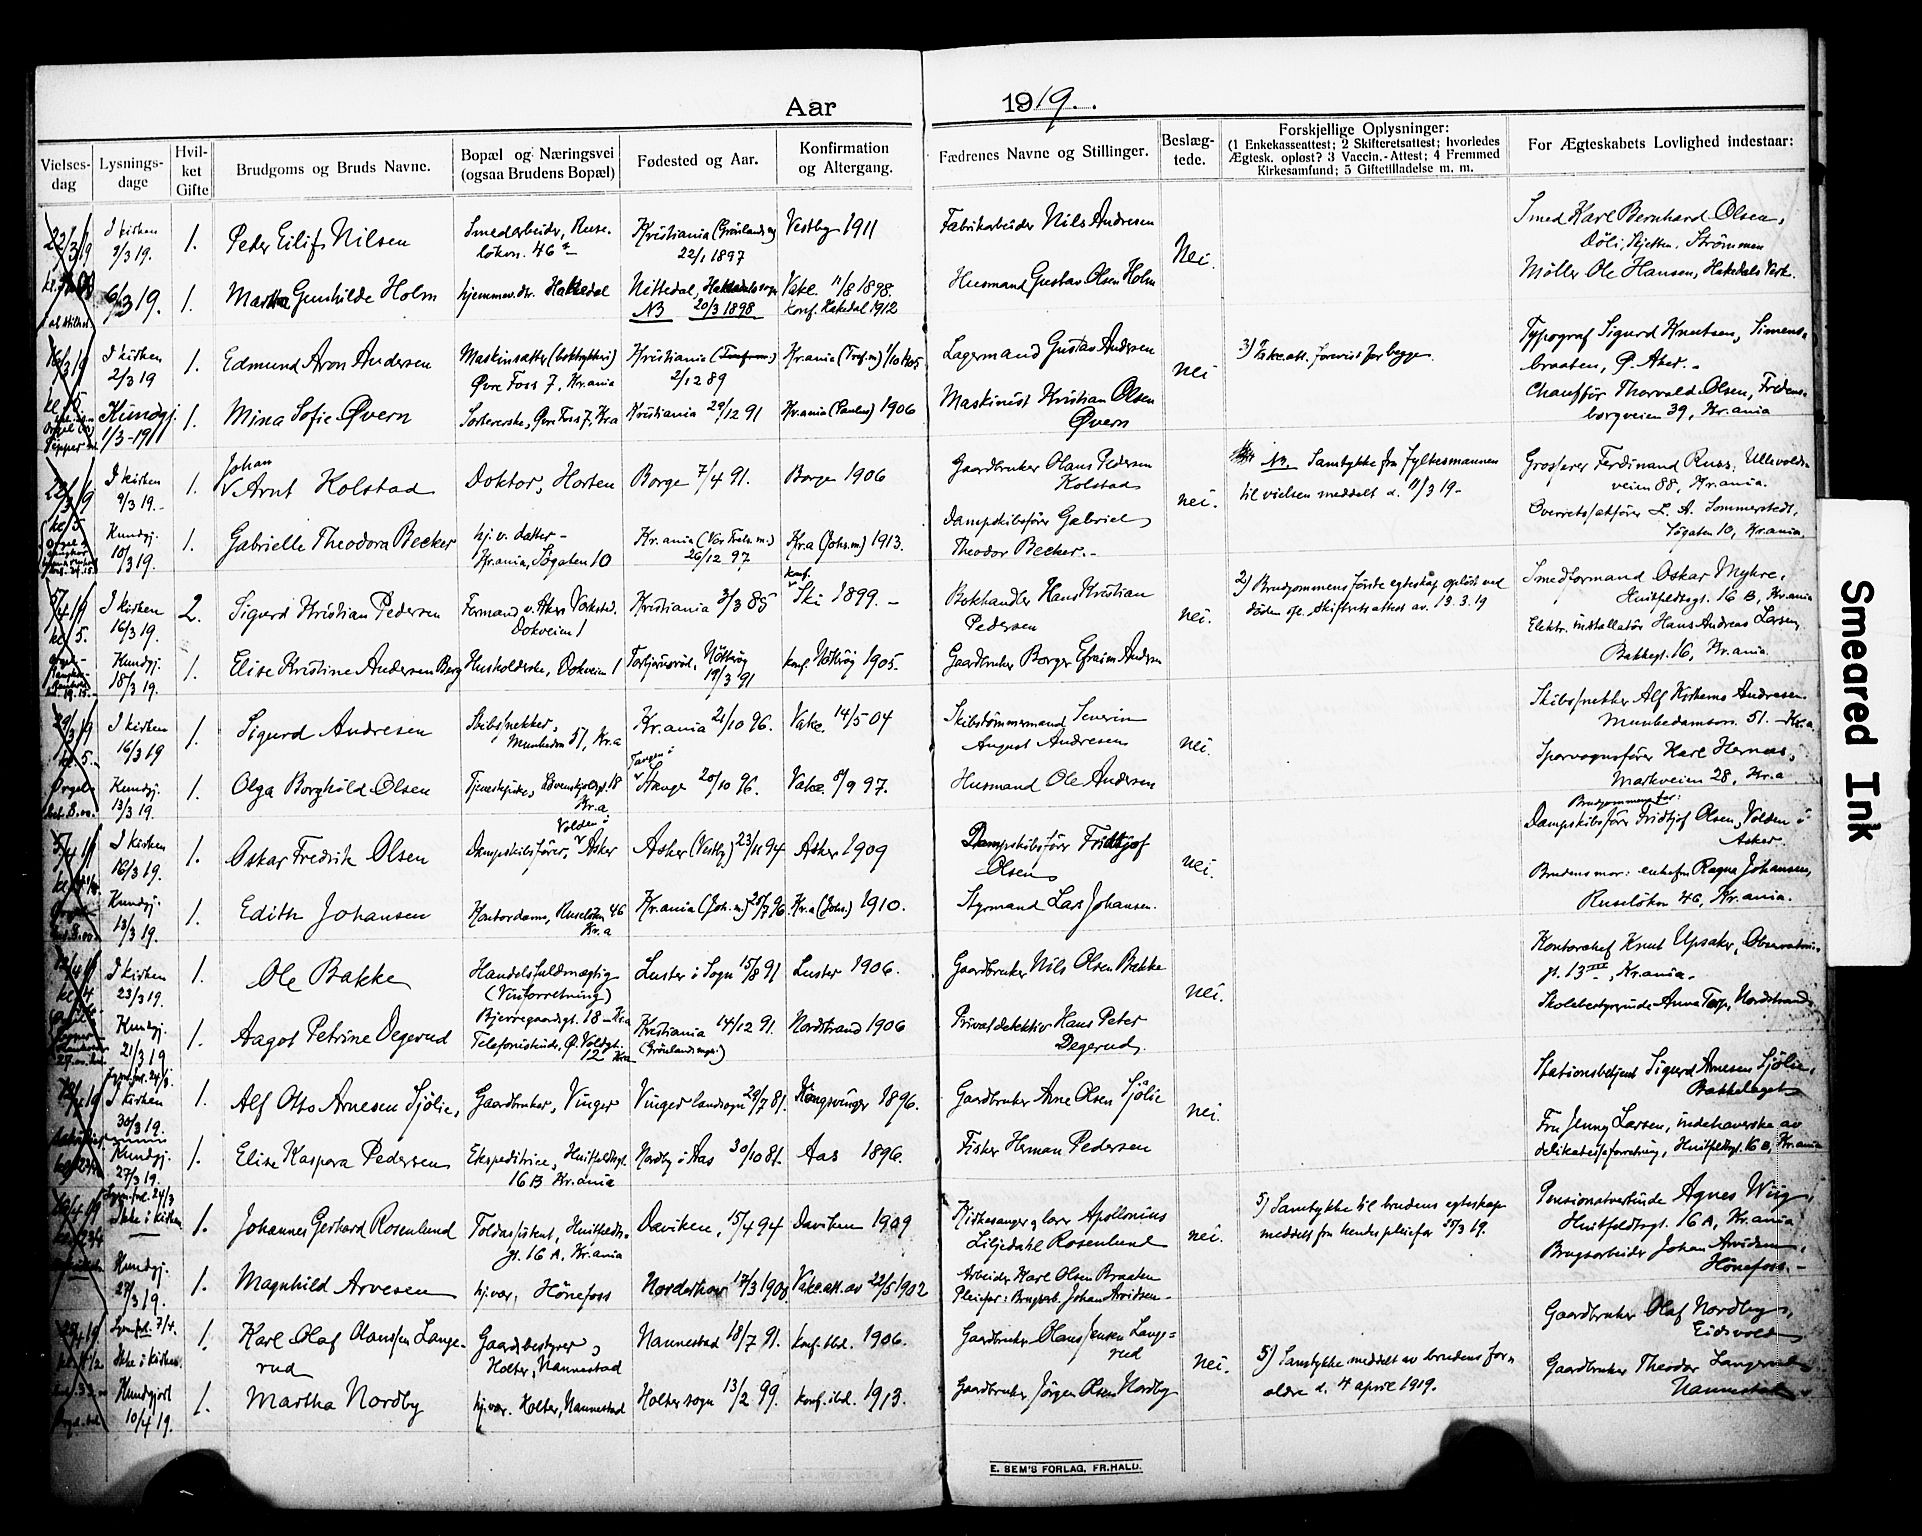 Aar 1919.
Vielses-dag
Lysnings-dage
Hvil-ket Gifte
Brudgoms og Bruds Navne.
Bopæl og Næringsvei (ogsaa Brudens Bopæl)
Fødested og Aar.
Konfirmation og Altergang.
Fædrenes Navne og Stillinger.
Beslæg-tede.
Forskjellige Oplysninger:
(1 Enkekasseattest; 2 Skifteretsattest; hvorledes
Ægtesk. opløst? 3 Vaccin.-Attest; 4 Fremmed
Kirkesamfund; 5 Giftetilladelse m. m.
For Ægteskabets Lovlighed indestaar:
22/3 19 I kirken 2/3 19. 1. Peder Eilif Nilsen Smedarbeider, Ruse-løkvn. 46 Kristiania (Grønlands m) 22/1 1897 Vestby 1911 Fabrikarbeider Nils Andresen Nei. Smed Karl Bernhard Olsen, Døli, Skjetten, Strømmen
6/3 19. 1. Martha Gunhilde Holm hjemmev. dr. Hakedal Nittedal, Hakedals sogn NB 20/3 1898 Vakc. 11/8 1898. Konf. Hakedal 1912 Husmand Gustav Olsen Holm Møller Ole Hansen, Hakedals Verk.
16/3 19 I kirken 2/3 19 1. Edmund Aron Andersen Maskinsætter (boktrykkeri) Øvre Foss 7, Kr.ania Kristiania 2/12 89 Kr.ania (Tref.m) 1/10 1905 Lagermand Gustav Andersen nei 3) Vakc.att. forevist for begge. Typograf Sigurd Knutsen, Simens-braaten, Ø. Aker.
Kundgj. 1/3-19 1. Mina Sofie Øvern Sorterske, Øvre Foss 7, Kr.a Kristiania 29/12 91 Kr.ania (Paulus) 1906 Maskinist Kristian Olsen Øvern Chauffør Thorvald Olsen, Fredens-borgveien 39, Kr.ania
22/3 19 kl. 5 I kirken 9/3 19. 1. Johan Arnt Kolstad Doktor, Horten Borge 7/4 91. Borge 1906 Gaardbruker Hans Pedersen Kolstad nei. NB. Samtykke fra fylkesmannen til vielsen meddelt d. 11/3 19- Grosserer Ferdinand Russ, Ullevolds-veien 88, Kr.ania.
Kundgj. 10/3 19. 1. Gabrielle Theodora Becker hj. v. datter - Kr.ania, Søgaten 10 Kr.ania (Vor Frels. m.) 26/12 97 Kr.a (Johs. m) 1913. Dampskibsfører Gabriel Theodor Becker.- Overretssakfører L. A. Sommerstedt, Søgaten 10, Kr.ania.
5/4 19 kl. 5. I kirken 16/3 19. 2. Sigurd Kristian Pedersen Formand v. Akers Verksted. Dokveien 1 Kristiania 3/3 85 konf. Ski 1899. - Bokhandler Hans Kristian Pedersen nei. 2) Brudgommens første egteskap opløst ved døden ifg. skifteretsattest av. 13.3.19 Smedformand Oskar Myhre, Huitfeldtsgt. 16 B, Kr.ania
Kundgj. 18/3 19. 1. Elise Kristine Andersen Berg Husholderske, Dokveien 1 Nøtterøy 19/3 91 konf. Nøtterøy 1905. Gaardbruker Borger Efraim Andersen Elektr. installatør Hans Andreas Larsen, Bakkegt. 16, Kr.ania
29/3 19 kl. 5. I kirken 16/3 19 1. Sigurd Andresen Skibssnekker, Munkedm 51, Kr.a Kr.ania 21/10 96. Vakc. 14/5 04 Skibstømmermand Severin August Andresen nei. Skibssnekker Alf Andresen. Munkedamsvn. 51. - Kr.a.
Orgel Kundgj. 13/3 19. 1. Olga Borghild Olsen Tjenestepike, Løvenskjoldsgt. 18 Kr.a Tangen i Stange 20/10 96. Vakc. 8/9 97. Husmand Ole Andersen Sporvognsfører Karl Hernæs, Markveien 28, Kr.a
5/4 19 I kirken 16/3 19. 1. Oskar Fredrik Olsen Dampskibsfører, Volden i Asker Asker (Vestby) 23/11 94 Asker 1909 Dampskibsfører Fridtjof Olsen nei. Brudgommens far: Dampskibsfører Fridtjof Olsen, Volden i Asker.
Kundgj. 13/3 19. 1. Edith Johansen Kontordame, Ruseløkvn 46 Kr.a Kr.ania (Joh. m.) 25/7 96 Kr.a (Johs.) 1910. Styrmand Lars Johansen. Brudens mor: enkefru Ragna Johansen, Ruseløkvn 46, Kr.ania.
I kirken 23/3 19. 1. Ole Bakke Handelsfuldmægtig (Vinforretning) Bjerregaardsgt. 18 - Kr.a Luster i Sogn 15/8 91 Luster 1906. Gaardbruker Nils Olsen Bakke nei. Kontorchef Knut Upsaker, Observatorie-gt. 13 III, Kr.ania.
Kundgj. 21/3 19 1. Aagot Petrine Degerud Telefonistinde, Ø. Voldgt. 12 Kr.a Kristiania 14/12 91. (Grønlands m.) Nordstrand 1906 Privatdetektiv Hans Peter Degerud. Skolebestyrerinde Anna Torp, Nordstrand
Lysn.fod. 24/3. I kirken 30/3 19. 1. Alf Otto Arnesen Sjölie, Gaardbruker, Vinger Vinger landsogn 29/7 81. Kongsvinger 1896. Gaardbruker Arne Olsen Sjölie nei. Stationsbetjent Sigurd Arnesen Sjölie, Bækkelaget
Kundgj. 27/3 19. 1. Elise Kaspara Pedersen Ekspeditrice, Huitfeldtsgt. 16 B Kr.ania Nordby i Aas 30/10 81. Aas 1896. Fisker Herman Pedersen Fru Jenny Larsen, indehaverske av delikatesseforretning, Huitfeldtsgt. 16 B, Kr.ania
Lysn.fod. 24/3 Ikke i kirken 1. Johannes Gerhard Rosenlund Toldassistent, Huitfeldts-gt. 16 A, Kr.ania Daviken, 15/4 94 Daviken 1909 Kirkesanger og lærer Apollonius Liljedahl Rosenlund nei. 5) Samtykke til brudens egteskap meddelt fra hendes pleiefar 25/3 19. Pensionatvertinde Agnes Wiig, Huitfeldtsgt. 16 A, Kr.ania
Kundgj. 27/3 19. 1. Magnhild Arvesen hj.vær. Hönefoss Norderhov 17/3 1901 Vakc.att. av 22/5 1902 Arbeider Karl Olsen Braaten Pleiefar: Brugsarb. Johan Arvidsen- Brugsarbeider Johan Arvidsen, Hönefoss.-
Lysn.fod. 7/4. Ikke i kirken. 1. Karl Olaf Hanssen Lange-rud Gaardsbestyrer, Holter, Nannestad Nannestad 18/7 91. konf. ibd. 1906. Gaardbruker Hans Jensen Lange-rud nei. 5) Samtykke meddelt av brudens for-ældre d. 4 april 1919. Gaardbruker Olaf Nordby, Eidsvold
Kundgjort 10/4 19. 1. Martha Nordby hj.vær. Holter, Nannestad Holter sogn 13/2 99. konf. ibid. 1913. Gaardbruker Jørgen Olsen Nordby Gaardbruker Theodor Langerud Nannestad
E. SEM'S FORLAG, FR.HALD.
Smeared Ink